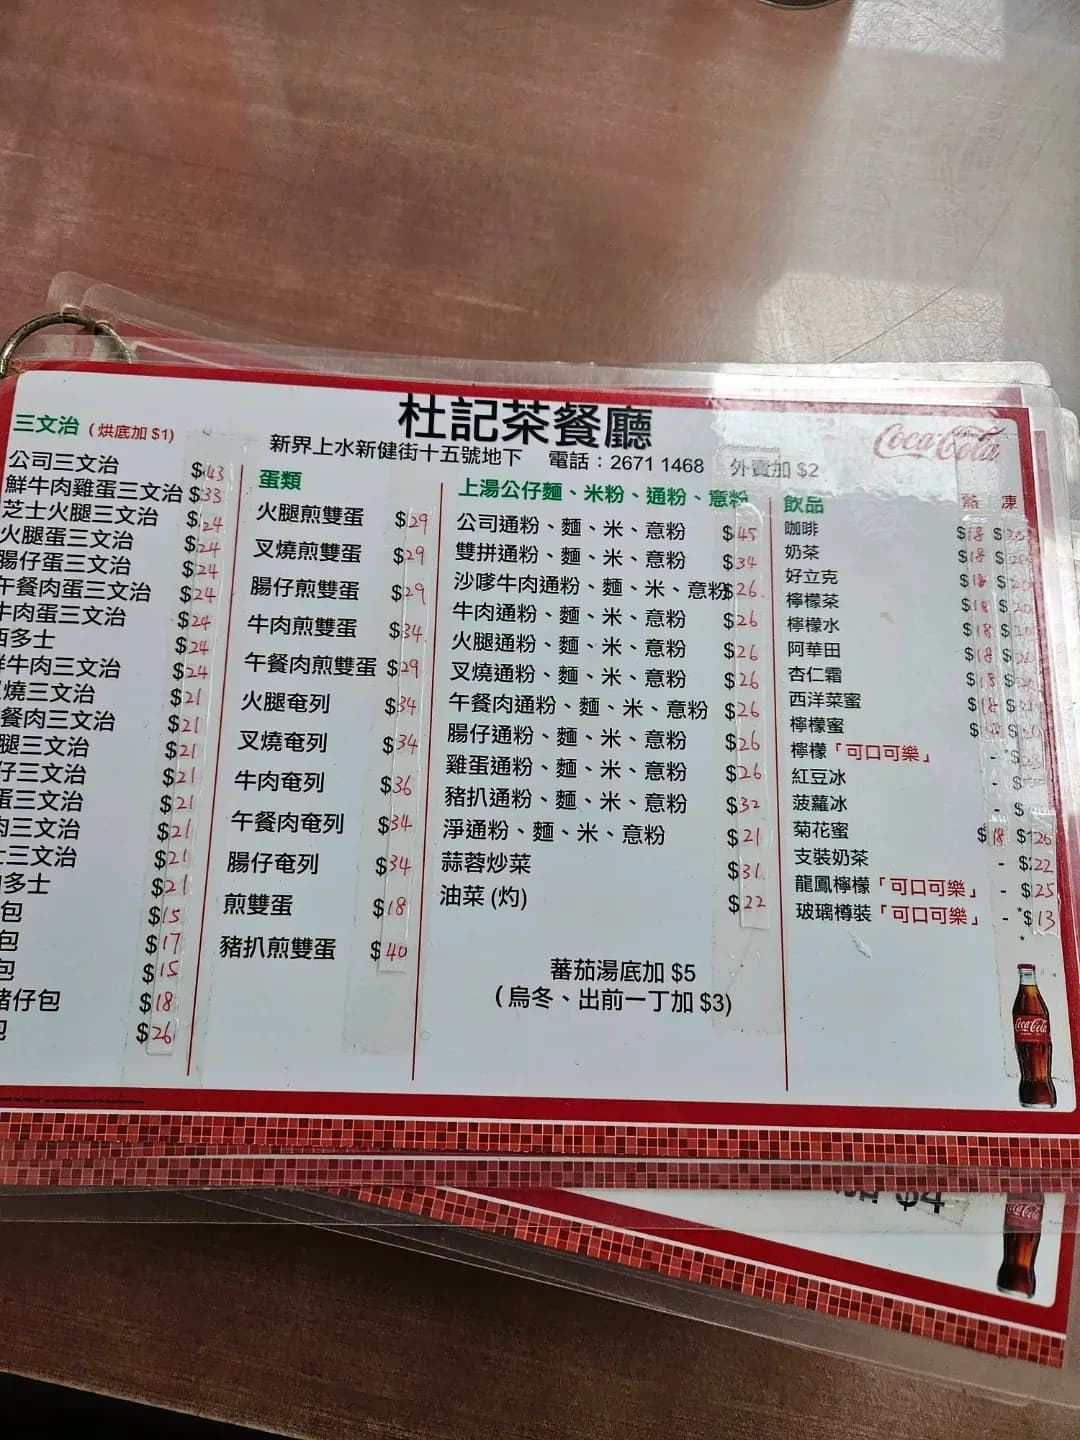 杜記茶餐廳
新界上水新健街十五號地下 電話：2671 1468 外賣加 $2
Coca-Cola
三文治 (烘底加 $1)
公司三文治 $43
鮮牛肉雞蛋三文治 $33
芝士火腿三文治 $24
火腿蛋三文治 $24
腸仔蛋三文治 $24
午餐肉蛋三文治 $24
牛肉蛋三文治 $24
西多士 $24
牛肉三文治 $24
燒三文治 $21
餐肉三文治 $21
腿三文治 $21
仔三文治 $21
蛋三文治 $21
肉三文治 $21
三文治 $21
多士 $21
包 $15
包 $17
包 $15
豬仔包 $18
包 $26
蛋類
火腿煎雙蛋 $29
叉燒煎雙蛋 $29
腸仔煎雙蛋 $29
牛肉煎雙蛋 $34
午餐肉煎雙蛋 $29
火腿奄列 $34
叉燒奄列 $34
牛肉奄列 $36
午餐肉奄列 $34
腸仔奄列 $34
煎雙蛋 $18
豬扒煎雙蛋 $40
上湯公仔麵、米粉、通粉、意粉
公司通粉、麵、米、意粉 $45
雙拼通粉、麵、米、意粉 $34
沙嗲牛肉通粉、麵、米、意粉 $26
牛肉通粉、麵、米、意粉 $26
火腿通粉、麵、米、意粉 $26
叉燒通粉、麵、米、意粉 $26
午餐肉通粉、麵、米、意粉 $26
腸仔通粉、麵、米、意粉 $26
雞蛋通粉、麵、米、意粉 $26
豬扒通粉、麵、米、意粉 $32
淨通粉、麵、米、意粉 $21
蒜蓉炒菜 $31
油菜 (灼) $22
蕃茄湯底加 $5
(烏冬、出前一丁加 $3)
飲品 熱 凍
咖啡 $18 $20
奶茶 $18 $20
好立克 $18 $20
檸檬茶 $18 $20
檸檬水 $18 $20
阿華田 $18 $20
杏仁霜 $18 $20
西洋菜蜜 $18 $20
檸檬蜜 $18 $20
檸檬「可口可樂」 - $23
紅豆冰 - $
菠蘿冰 - $
菊花蜜 $18 $20
支裝奶茶 - $22
龍鳳檸檬「可口可樂」 - $25
玻璃樽裝「可口可樂」 - *$13
*
Coca-Cola
$4